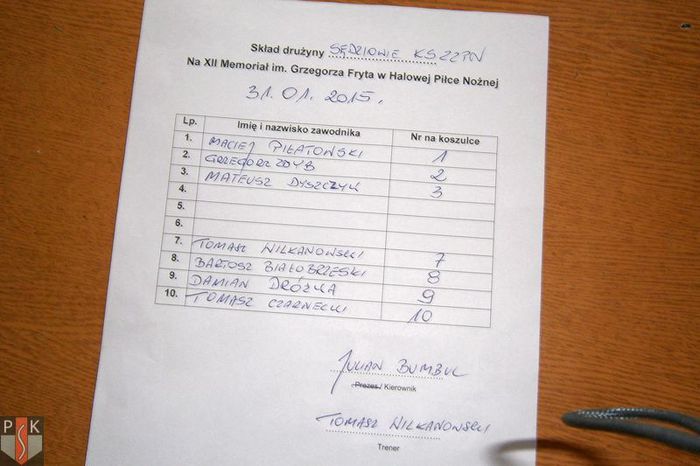 Skład drużyny SĘDZIOWIE KSZZPN
Na XII Memoriał im. Grzegorza Fryta w Halowej Piłce Nożnej
31.01.2015.
Lp. Imię i nazwisko zawodnika Nr na koszulce
1. MACIEJ PIŁATOWSKI 1
2. GRZEGORZ ZDYB 2
3. MATEUSZ DYSZCZYK 3
4.
5.
6.
7. TOMASZ WILKANOWSKI 7
8. BARTOSZ BIAŁOBRZESKI 8
9. DAMIAN DRÓŻKA 9
10. TOMASZ CZARNECKI 10
JULIAN BUMBUL
Prezes / Kierownik
TOMASZ WILKANOWSKI
Trener
PSK